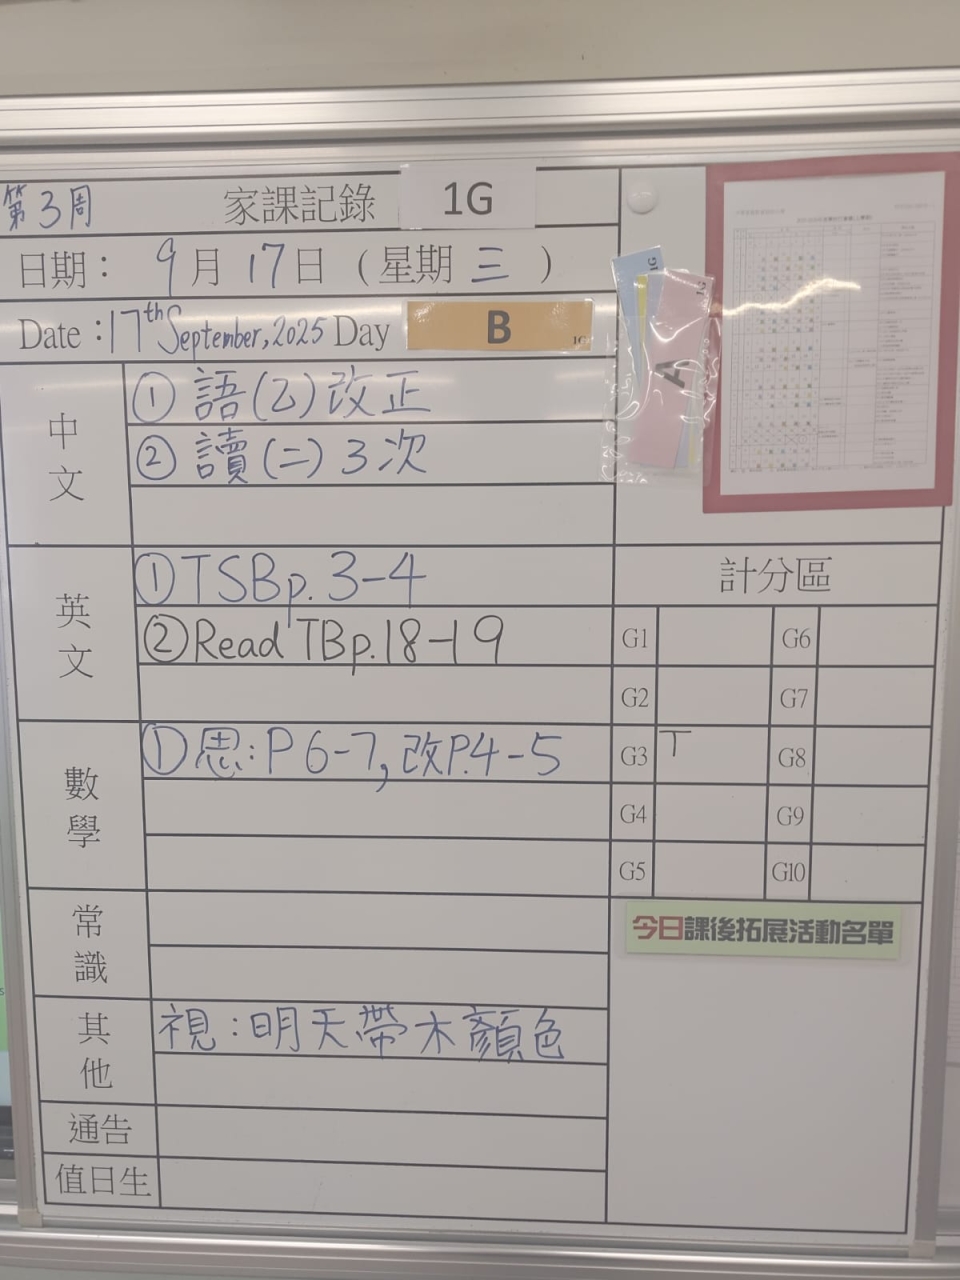 第3周 家課記錄 1G
日期： 9月17日（星期三）
Date : 17th September, 2025 Day B
1G
1G
1G
A
中文
① 語(乙)改正
② 讀(二) 3次
英文
① TSBp. 3-4
② Read TBp.18-19
數學
① 思:P 6-7, 改P.4-5
常識
其他
視：明天帶木顏色
通告
值日生
計分區
G1 G6
G2 G7
G3 T G8
G4 G9
G5 G10
今日課後拓展活動名單